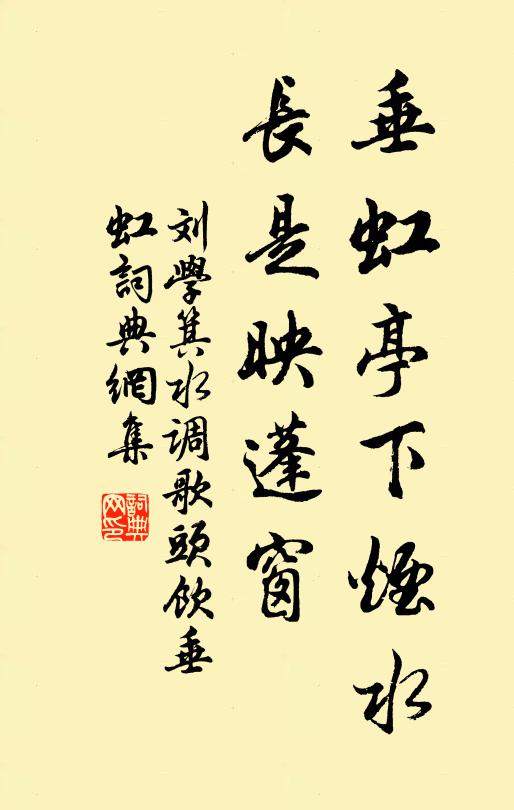 垂虹亭下煙水
長是映蓬窗
刘學箕水调歌頭飲垂
虹詞典網集
詞典網印